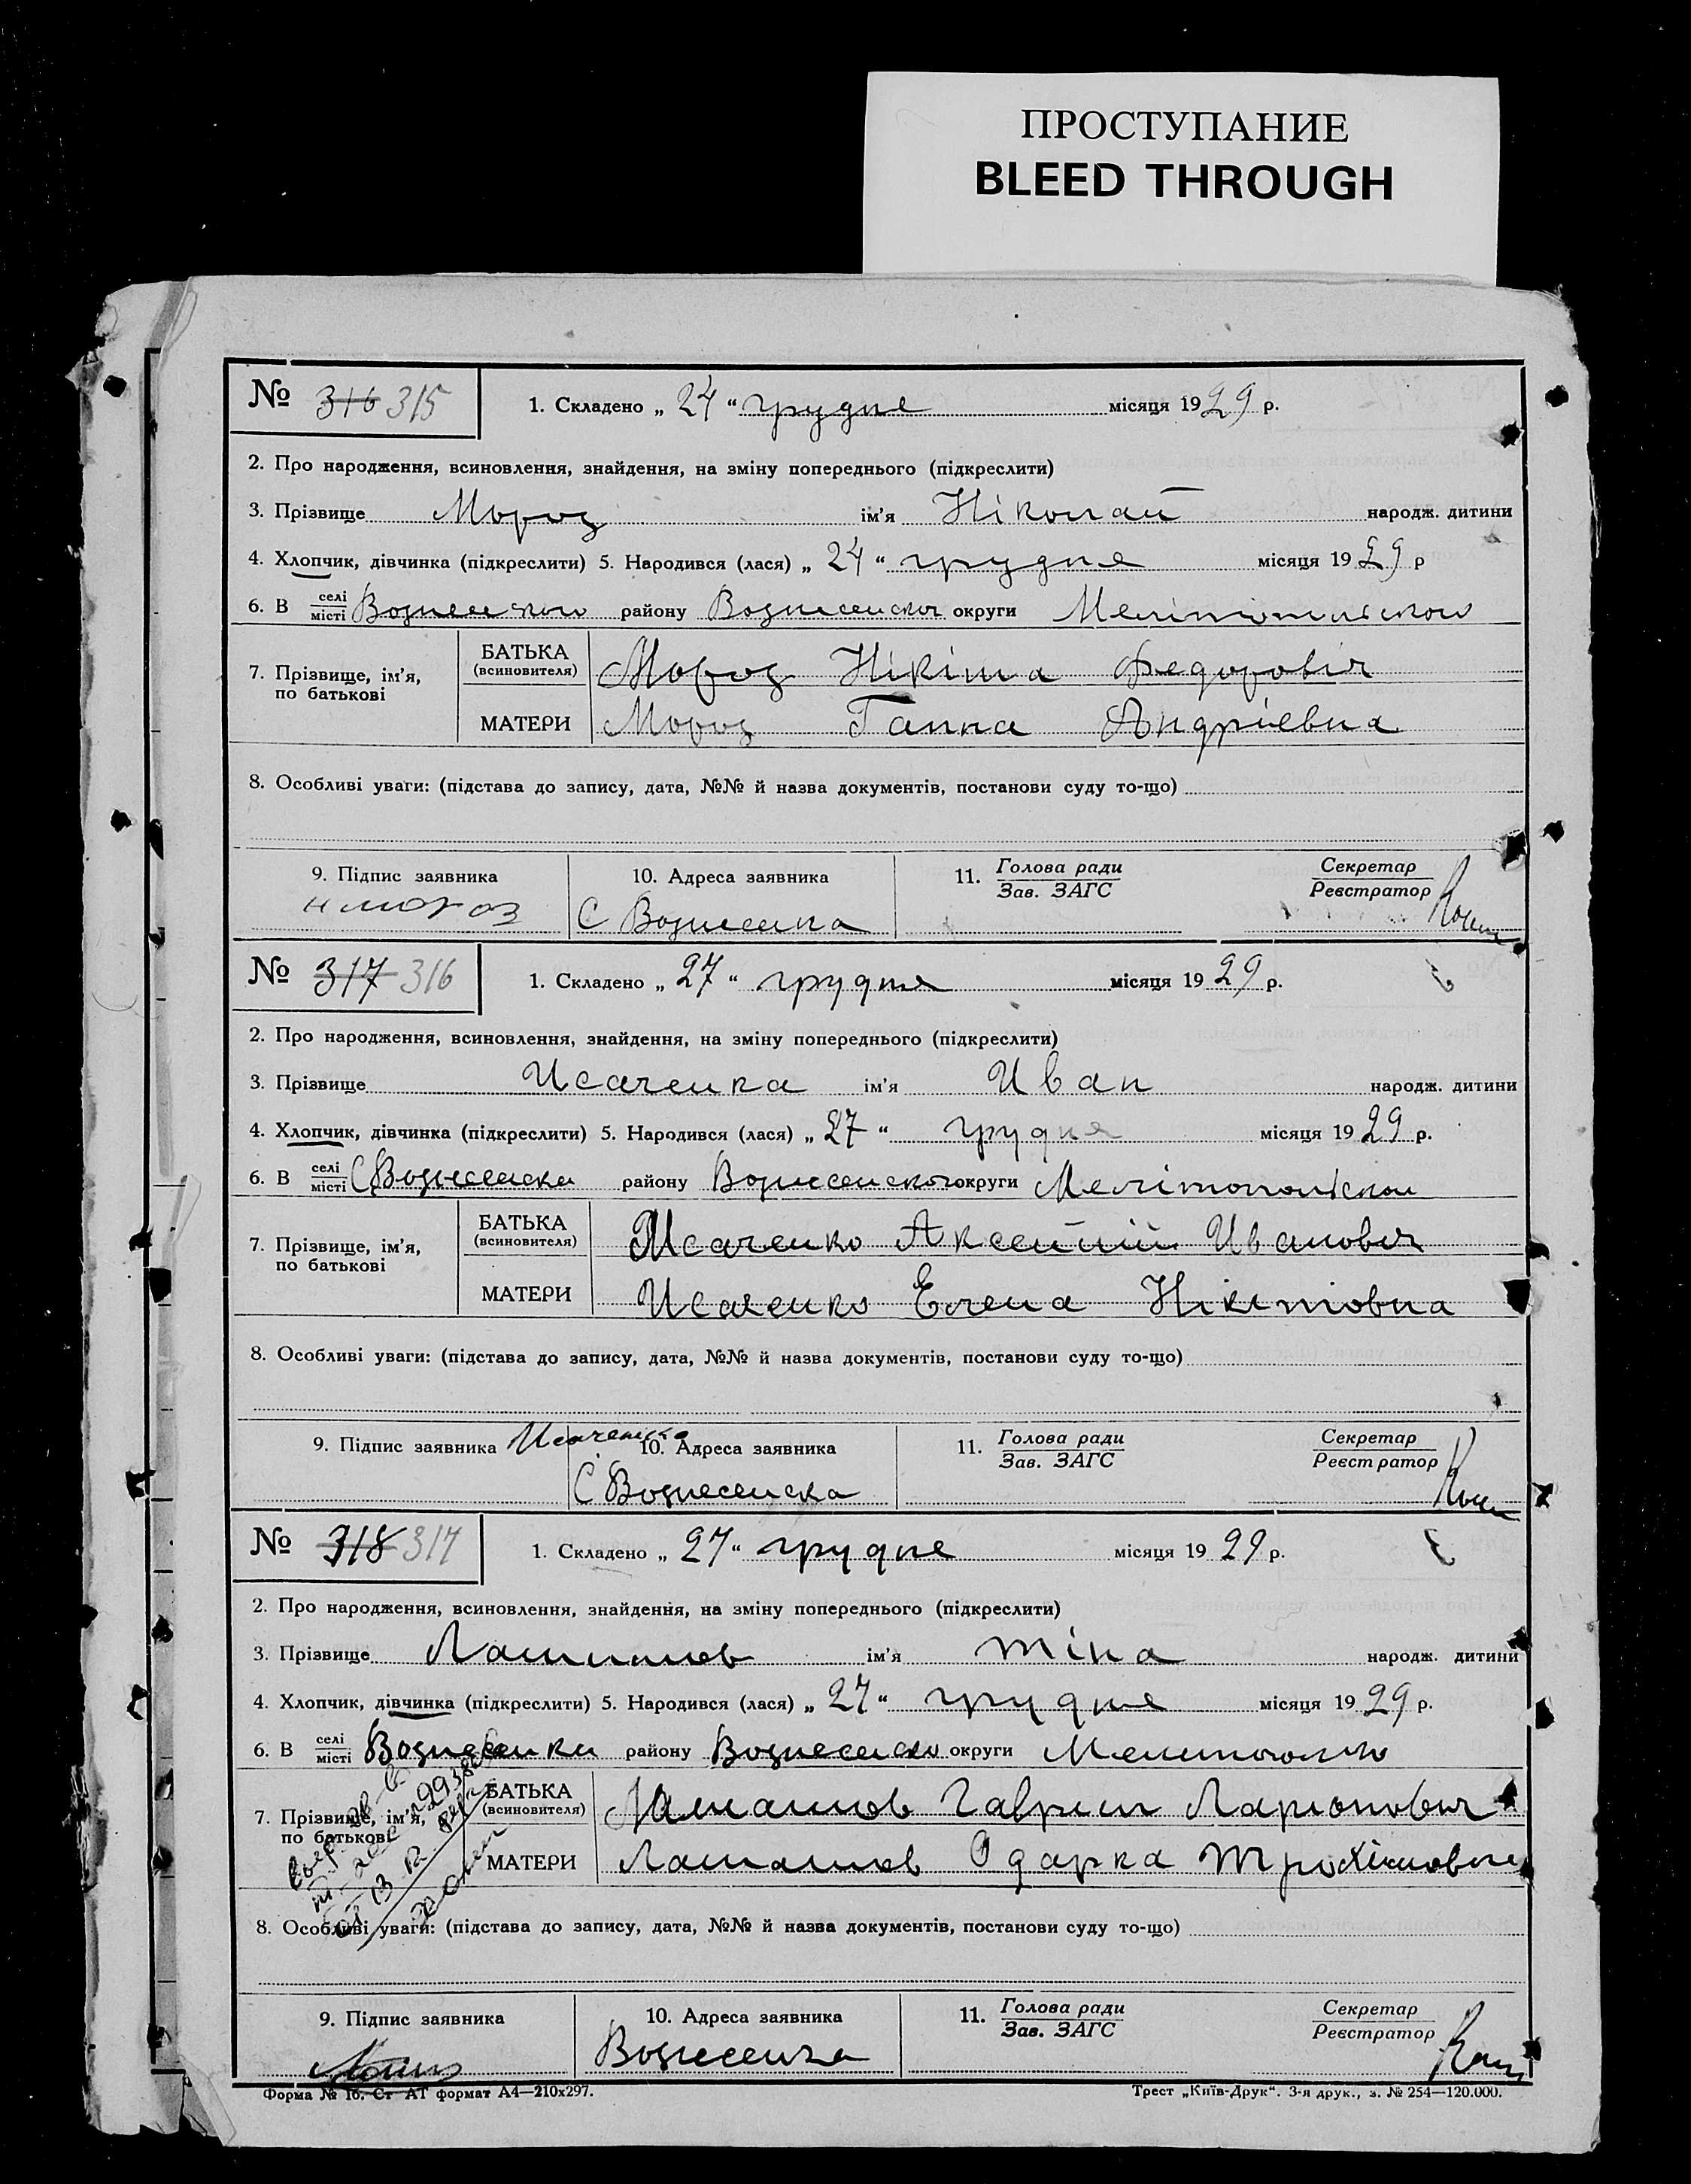 ПРОСТУПАНИЕ
BLEED THROUGH
№ 316 315 1. Складено „ 24 “ грудня місяця 1929 р.
2. Про народження, всиновлення, знайдення, на зміну попереднього (підкреслити)
3. Прізвище Мороз ім'я Ніколай народж. дитини
4. Хлопчик, дівчинка (підкреслити) 5. Народився (лася) „ 24 “ грудня місяця 1929 р
6. В селі місті району округи Мелітопольской
7. Прізвище, ім'я, по батькові
БАТЬКА (всиновителя) Мороз Нікіта Федоровіч
МАТЕРИ Мороз Ганна Андріевна
8. Особливі уваги: (підстава до запису, дата, №№ й назва документів, постанови суду то-що)
9. Підпис заявника 10. Адреса заявника 11. Голова ради Зав. ЗАГС Секретар Реєстратор
Н Мороз С Вознесенка
№ 317 316 1. Складено „ 27 “ грудня місяця 1929 р.
2. Про народження, всиновлення, знайдення, на зміну попереднього (підкреслити)
3. Прізвище Исаченка ім'я Иван народж. дитини
4. Хлопчик, дівчинка (підкреслити) 5. Народився (лася) „ 27 “ грудня місяця 1929 р.
6. В селі місті району округи
7. Прізвище, ім'я, по батькові
БАТЬКА (всиновителя) Исаченко Ивановіч
МАТЕРИ Исаченко Елена Нікітовна
8. Особливі уваги: (підстава до запису, дата, №№ й назва документів, постанови суду то-що)
9. Підпис заявника Исаченко 10. Адреса заявника 11. Голова ради Зав. ЗАГС Секретар Реєстратор
С Вознесенка
№ 318 317 1. Складено „ 27 “ грудня місяця 1929 р.
2. Про народження, всиновлення, знайдення, на зміну попереднього (підкреслити)
3. Прізвище ім'я Тіна народж. дитини
4. Хлопчик, дівчинка (підкреслити) 5. Народився (лася) „ 27 “ грудня місяця 1929 р.
6. В селі місті Вознесенки району округи
7. Прізвище, ім'я, по батькові
БАТЬКА (всиновителя) Гаврил Ларионович
МАТЕРИ Одарка Трохімовна
8. Особливі уваги: (підстава до запису, дата, №№ й назва документів, постанови суду то-що)
9. Підпис заявника 10. Адреса заявника 11. Голова ради Зав. ЗАГС Секретар Реєстратор
Вознесенка
Форма № 16. Ст АТ формат А4—210х297. Трест „Київ-Друк“. 3-я друк., з. № 254—120.000.